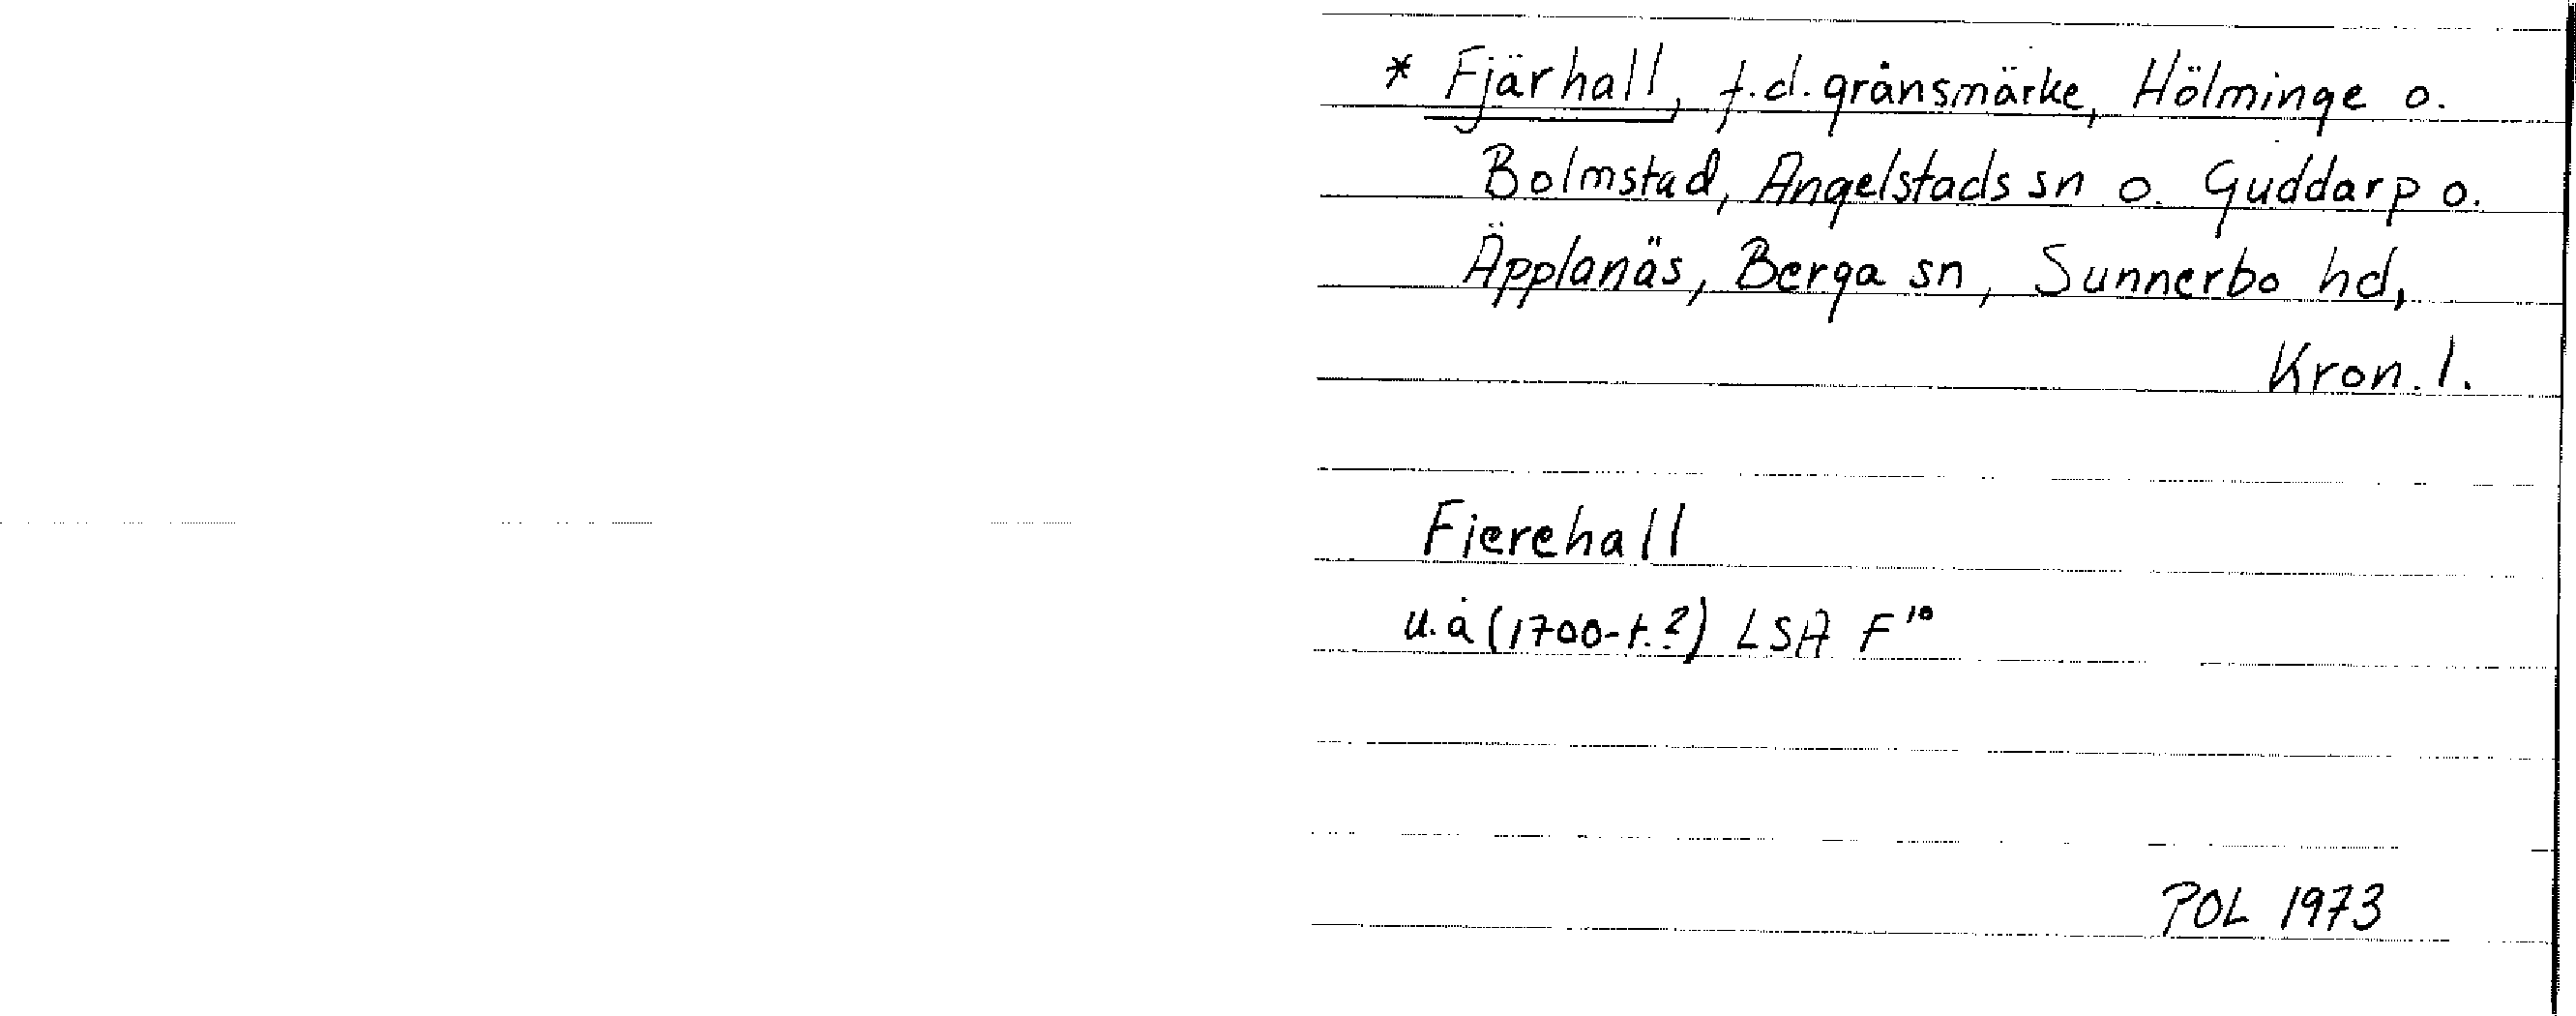 * Fjärhall, f.d. gränsmärke, Hölminge o.
Bolmstad, Angelstads sn o. Guddarp o.
Äpplanäs, Berga sn, Sunnerbo hd,
Kron. l.
Fierehall
u.å (1700-t.?) LSA F¹⁰
POL 1973